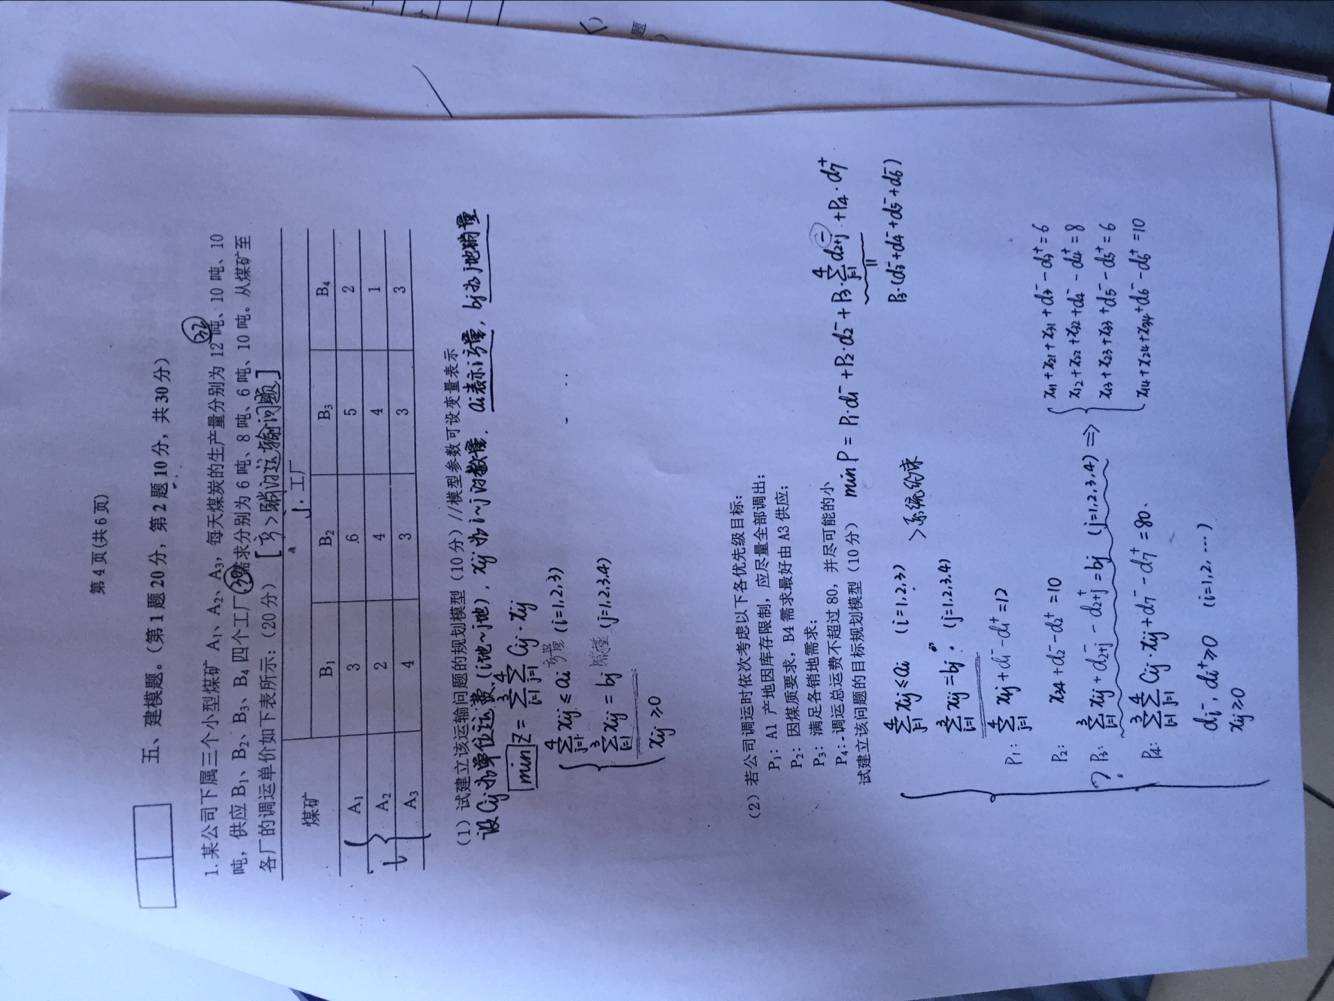 第 4 页(共 6 页)
五、建模题。（第 1 题 20 分，第 2 题 10 分，共 30 分）
32
1.某公司下属三个小型煤矿 A₁、A₂、A₃，每天煤炭的生产量分别为 12 吨、10 吨、10
吨，供应 B₁、B₂、B₃、B₄ 四个工厂，需求分别为 6 吨、8 吨、6 吨、10 吨。从煤矿至
各厂的调运单价如下表所示：(20 分) [产>销的运输问题]
煤矿 j. 工厂
B₁ B₂ B₃ B₄
A₁ 3 6 5 2
A₂ 2 4 4 1
A₃ 4 3 3 3
（1）试建立该运输问题的规划模型（10 分）//模型参数可设变量表示
设 Cij 为单位运费 (i地~j地)，xij 为 i~j 的数量，ai表示i产量，bj为j地销量
min Z = ∑(i=1→3) ∑(j=1→4) Cij·xij
∑(j=1→4) xij ≤ ai 产量 (i=1,2,3)
∑(i=1→3) xij = bj 销量 (j=1.2.3.4)
xij ≥0
（2）若公司调运时依次考虑以下各优先级目标：
P₁：A1 产地因库存限制，应尽量全部调出；
P₂：因煤质要求，B4 需求最好由 A3 供应；
P₃：满足各销地需求；
P₄：调运总运费不超过 80，并尽可能的小
试建立该问题的目标规划模型（10 分） min P = P₁·d₁⁻ + P₂·d₂⁻ + P₃·∑(j=1→4) d₂₊ⱼ⁻ + P₄·d₇⁺
P₃·(d₃⁻+d₄⁻+d₅⁻+d₆⁻)
∑(j=1→4) xij ≤ ai (i=1,2,3)
>系统约束
∑(i=1→3) xij = bj (j=1.2.3.4)
P₁: ∑(j=1→4) x₁j + d₁⁻ - d₁⁺ = 12
P₂: x₃₄ + d₂⁻ - d₂⁺ = 10
? P₃: ∑(i=1→3) xij + d₂₊ⱼ⁻ - d₂₊ⱼ⁺ = bj (j=1,2,3,4) ⇒
x₁₁ + x₂₁ + x₃₁ + d₃⁻ - d₃⁺ = 6
x₁₂ + x₂₂ + x₃₂ + d₄⁻ - d₄⁺ = 8
x₁₃ + x₂₃ + x₃₃ + d₅⁻ - d₅⁺ = 6
x₁₄ + x₂₄ + x₃₄ + d₆⁻ - d₆⁺ = 10
P₄: ∑(i=1→3) ∑(j=1→4) Cij·xij + d₇⁻ - d₇⁺ = 80.
di⁻, di⁺ ≥0 (i=1,2, …)
xij ≥0
题